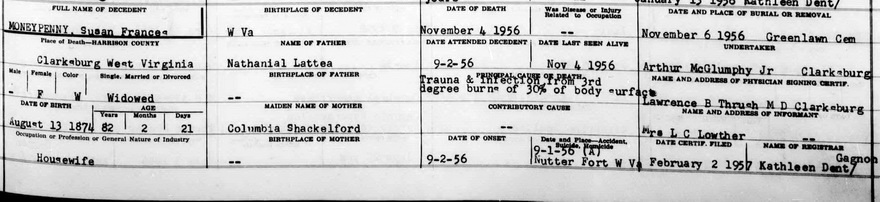 January 15 1956 Kathleen Dent/
FULL NAME OF DECEDENT
BIRTHPLACE OF DECEDENT
DATE OF DEATH
Was Disease or Injury Related to Occupation
DATE AND PLACE OF BURIAL OR REMOVAL
MONEYPENNY, Susan Frances
W Va
November 4 1956
--
November 6 1956 Greenlawn Cem
Place of Death—HARRISON COUNTY
NAME OF FATHER
DATE ATTENDED DECEDENT
DATE LAST SEEN ALIVE
UNDERTAKER
Clarksburg West Virginia
Nathanial Lattea
9-2-56
Nov 4 1956
Arthur McGlumphy Jr Clarksburg
Male Female Color Single, Married or Divorced
BIRTHPLACE OF FATHER
PRINCIPAL CAUSE OF DEATH
NAME AND ADDRESS OF PHYSICIAN SIGNING CERTIF.
- F W Widowed
--
Trauma & infection from 3rd
degree burns of 30% of body surface
Lawrence B Thrush M D Clarksburg
DATE OF BIRTH
AGE
Years Months Days
MAIDEN NAME OF MOTHER
CONTRIBUTORY CAUSE
NAME AND ADDRESS OF INFORMANT
August 13 1874 82 2 21
Columbia Shackelford
--
Mrs L C Lowther --
Occupation or Profession or General Nature of Industry
BIRTHPLACE OF MOTHER
DATE OF ONSET
Date and Place—Accident, Suicide, Homicide
DATE CERTIF. FILED
NAME OF REGISTRAR
Housewife
--
9-2-56
9-1-56 (A)
Nutter Fort W Va
February 2 1957 Kathleen Dent/
Gagnon